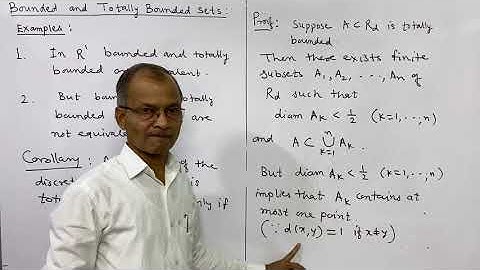 Bounded and Totally Bounded Sets:
Examples:
1. In R' bounded and totally
bounded
2. But
bounded are
not equivalent.
Corollary: of the
discret is
tota only if
Proof: Suppose A ⊂ Rd is totally
bounded.
Then there exists finite
subsets A1, A2, ..., An of
Rd such that
diam Ak < 1/2 (k=1, ..., n)
and A ⊂ ⋃_{k=1}^{n} Ak.
But diam Ak < 1/2 (k=1, ..., n)
implies that Ak contains at
most one point.
(∵ d(x,y) = 1 if x≠y)